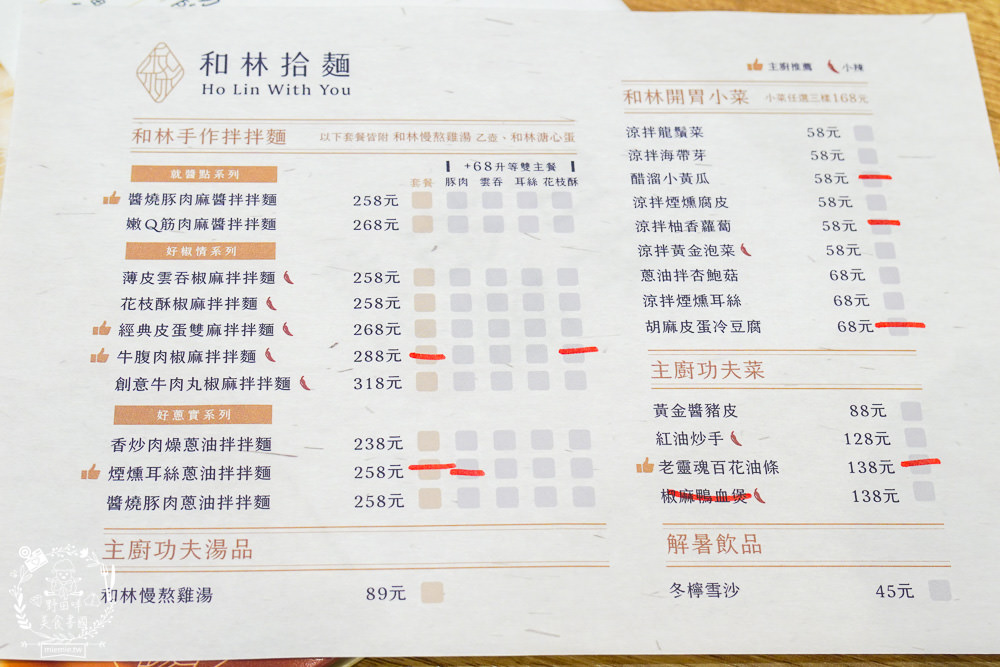 和林拾麵
Ho Lin With You
和林手作拌拌麵 以下套餐皆附 和林慢熬雞湯 乙壺、和林溏心蛋
+68升等雙主餐
就醬點系列 套餐 豚肉 雲吞 耳絲 花枝酥
醬燒豚肉麻醬拌拌麵 258元
嫩Q筋肉麻醬拌拌麵 268元
好椒情系列
薄皮雲吞椒麻拌拌麵 258元
花枝酥椒麻拌拌麵 258元
經典皮蛋雙麻拌拌麵 268元
牛腹肉椒麻拌拌麵 288元
創意牛肉丸椒麻拌拌麵 318元
好蔥實系列
香炒肉燥蔥油拌拌麵 238元
煙燻耳絲蔥油拌拌麵 258元
醬燒豚肉蔥油拌拌麵 258元
主廚功夫湯品
和林慢熬雞湯 89元
主廚推薦 小辣
和林開胃小菜 小菜任選三樣168元
涼拌龍鬚菜 58元
涼拌海帶芽 58元
醋溜小黃瓜 58元
涼拌煙燻腐皮 58元
涼拌柚香蘿蔔 58元
涼拌黃金泡菜 58元
蔥油拌杏鮑菇 68元
涼拌煙燻耳絲 68元
胡麻皮蛋冷豆腐 68元
主廚功夫菜
黃金醬豬皮 88元
紅油炒手 128元
老靈魂百花油條 138元
椒麻鴨血煲 138元
解暑飲品
冬檸雪沙 45元
美食樂園